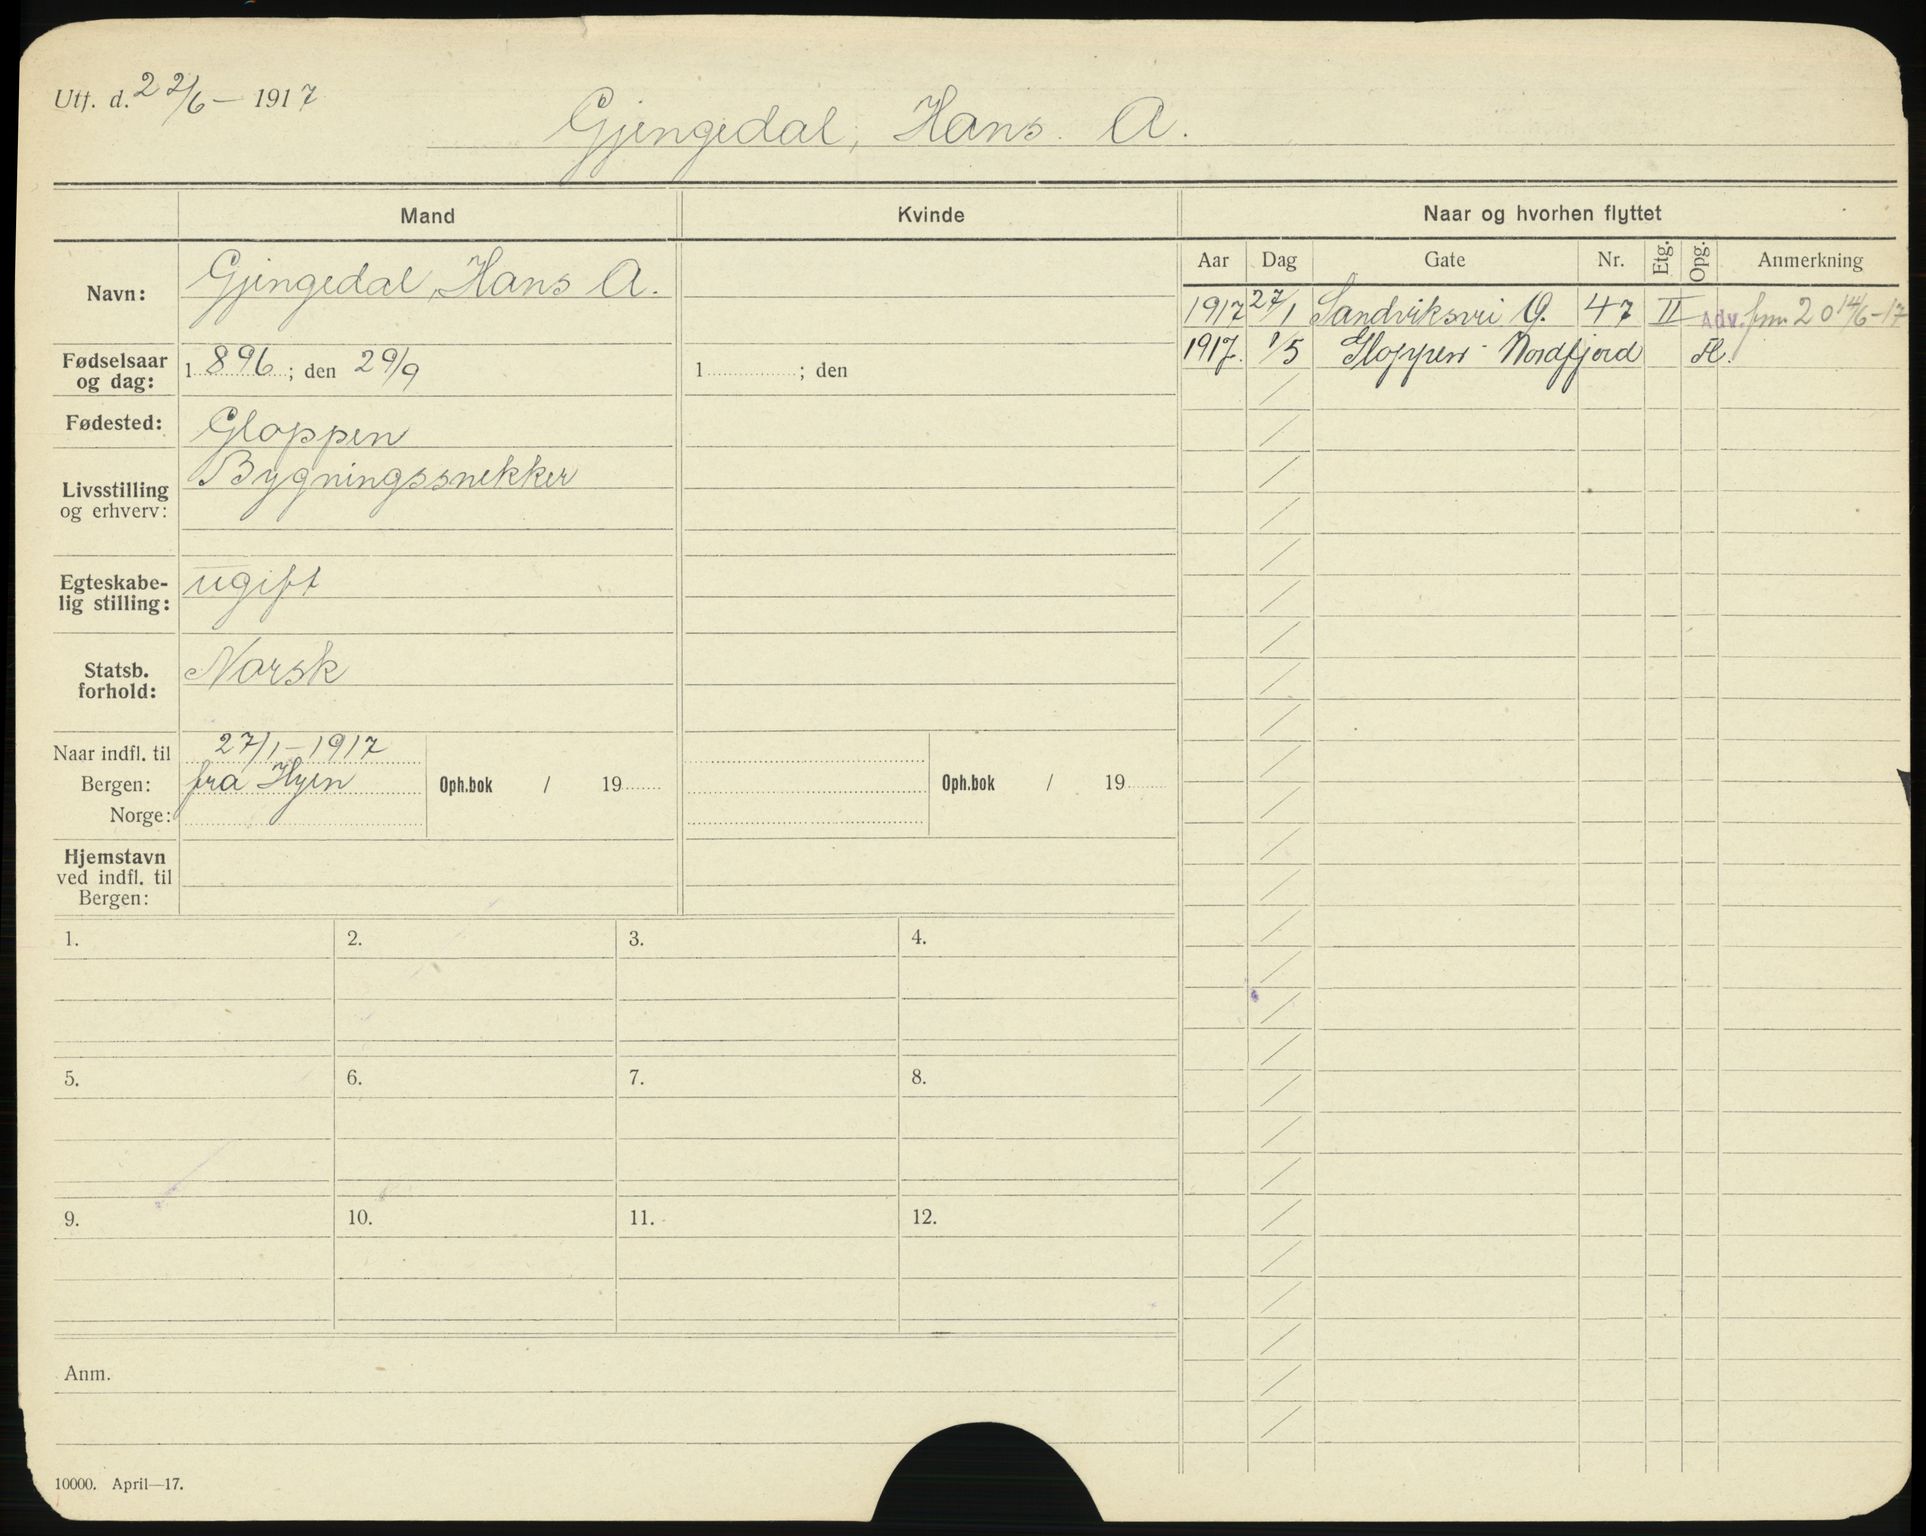 Utf. d. 22/6 – 1917
Gjengedal, Hans. A.
Mand
Kvinde
Naar og hvorhen flyttet
Aar Dag Gate Nr. Etg. Opg. Anmerkning
Navn: Gjengedal, Hans A.
1917 27/1 Sandviksvei O. 47 II Adv. 20 14/6-17
1917. 1/5 Gloppen - Nordfjord Fl.
Fødselsaar
og dag: 1 896 ; den 29/9
1 ; den
Fødested: Gloppen
Livsstilling
og erhverv: Bygningssnekker
Egteskabe-
lig stilling: ugift
Statsb.
forhold: Norsk
Naar indfl. til 27/1 – 1917
Bergen: fra Hyen Oph.bok / 19
Oph.bok / 19
Norge:
Hjemstavn
ved indfl. til
Bergen:
1. 2. 3. 4.
5. 6. 7. 8.
9. 10. 11. 12.
Anm.
10000. April—17.